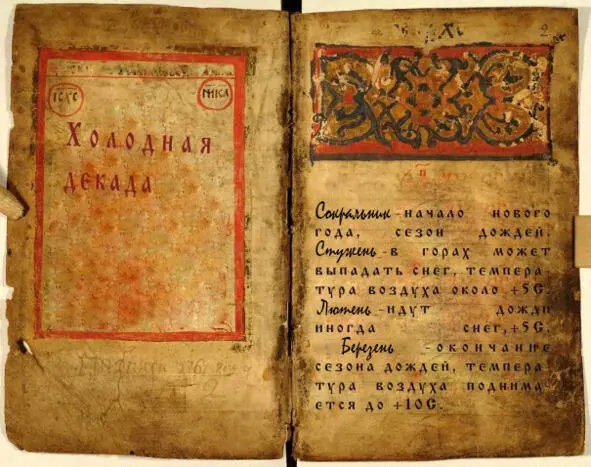 ІС ХС
НИКА
Холодная
декада
2
Сокральник - начало нового
года, сезон дождей.
Стужень - в горах может
выпадать снег, темпера
тура воздуха около +5С.
Лютень - идут дожди
иногда снег, +5С.
Березень - окончание
сезона дождей, темпера
тура воздуха поднима
ется до +10С.